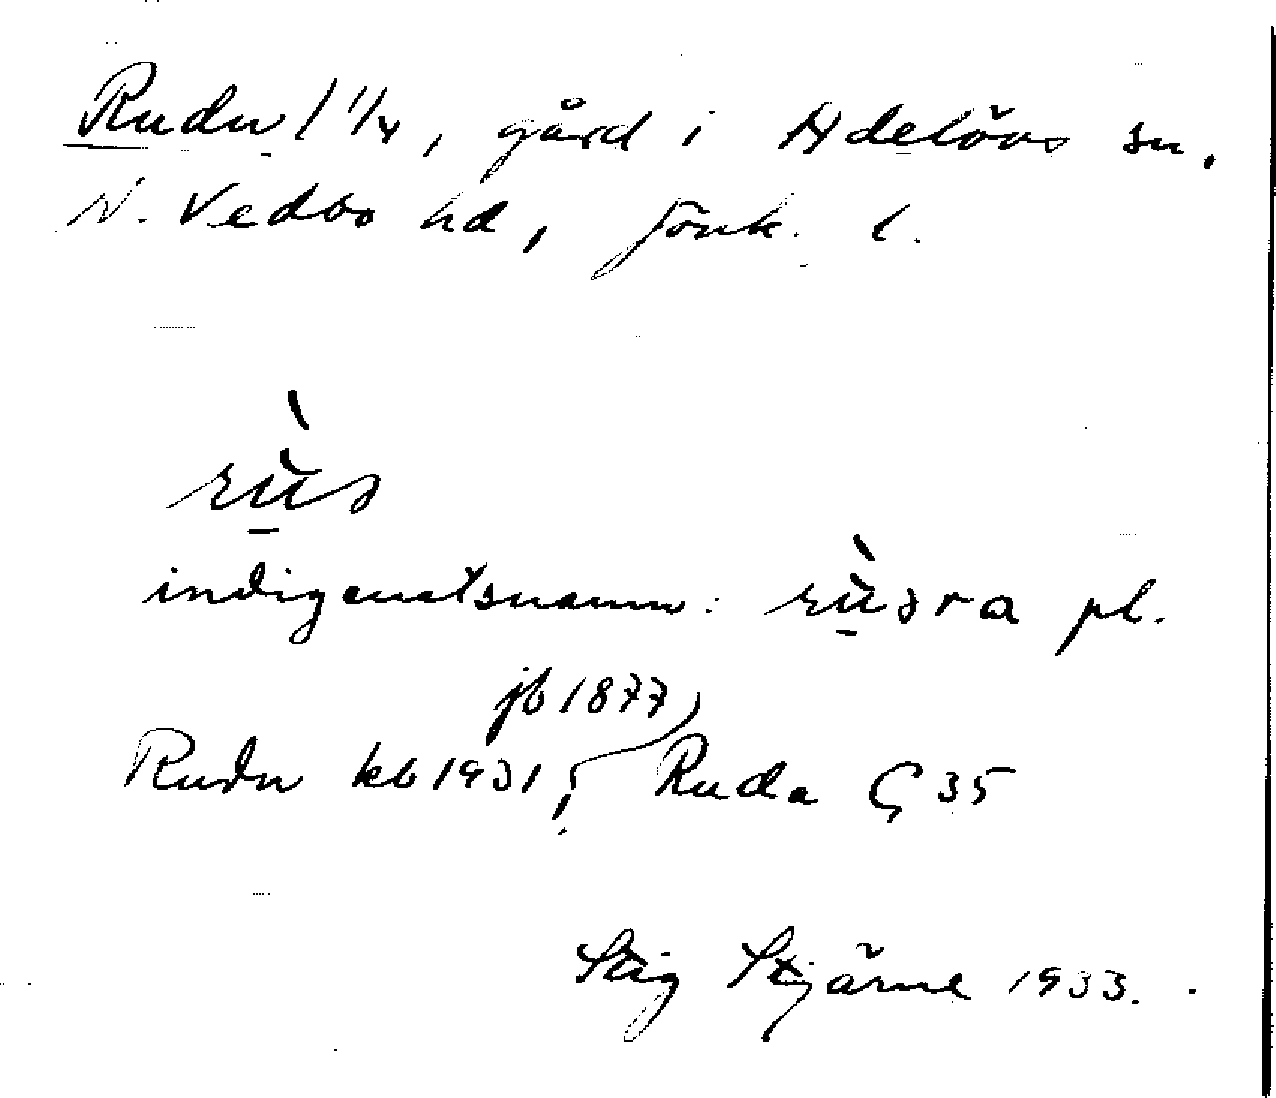 Rudu 1 1/4, gård i Adelövs sn.
N. Vedbo hd, Jönk. l.
rùə
indigenatsnamn: rùəra pl.
jb 1877
Rudu kb 1931, Ruda G 35
Stig Stjärne 1933.